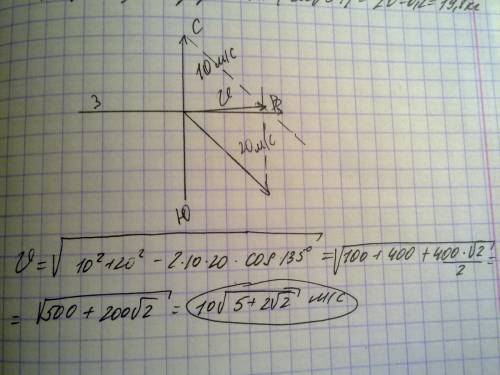 = 20-0,2 = 19,8 кг
С
10 м/с
З
V
В
20 м/с
Ю
V = √(10² + 20² - 2·10·20·cos 135°) = √(100 + 400 + 400·√2/2) =
= √(500 + 200√2) = 10√(5 + 2√2) м/с